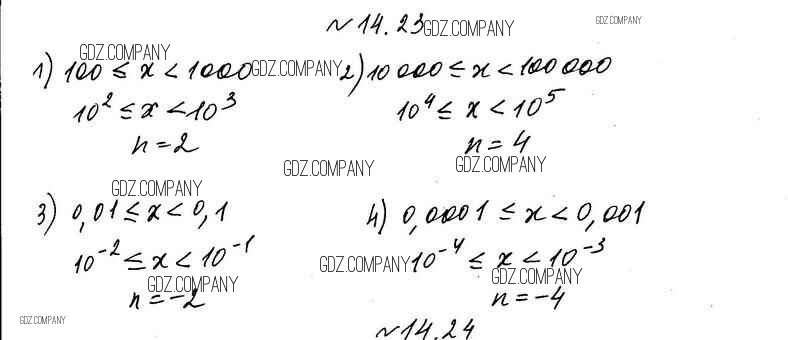 №14.23 GDZ.COMPANY GDZ.COMPANY
GDZ.COMPANY
1) 100 ≤ x < 1000 GDZ.COMPANY 2) 10 000 ≤ x < 100 000
10² ≤ x < 10³ 10⁴ ≤ x < 10⁵
n = 2 n = 4
GDZ.COMPANY GDZ.COMPANY
GDZ.COMPANY
3) 0,01 ≤ x < 0,1 4) 0,0001 ≤ x < 0,001
10⁻² ≤ x < 10⁻¹ GDZ.COMPANY 10⁻⁴ ≤ x < 10⁻³
GDZ.COMPANY GDZ.COMPANY
n = -2 n = -4
GDZ.COMPANY
№14.24